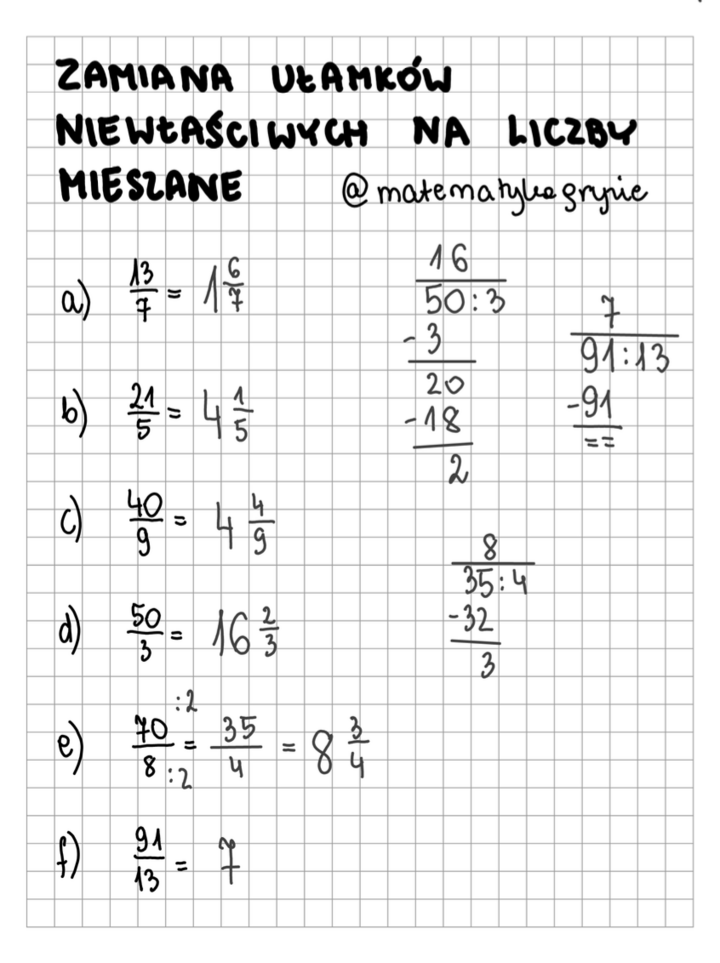 ZAMIANA UŁAMKÓW
NIEWŁAŚCIWYCH NA LICZBY
MIESZANE @matematykagrypie
a) 13/7 = 1 6/7
b) 21/5 = 4 1/5
c) 40/9 = 4 4/9
d) 50/3 = 16 2/3
e) 70/8 :2 :2 = 35/4 = 8 3/4
f) 91/13 = 7
16
50:3
-3
20
-18
2
7
91:13
-91
==
8
35:4
-32
3